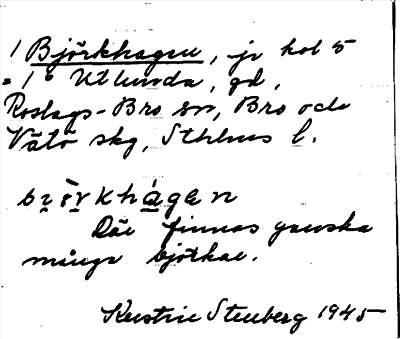 1 Björkhagen, jr kol 5
= 1° Utlunda, gd,
Roslags-Bro sn, Bro och
Vätö skg, Sthlms l.
bi̯ö̀rkhágen
Där finnas ganska
många björkar.
Kerstin Stenberg 1945